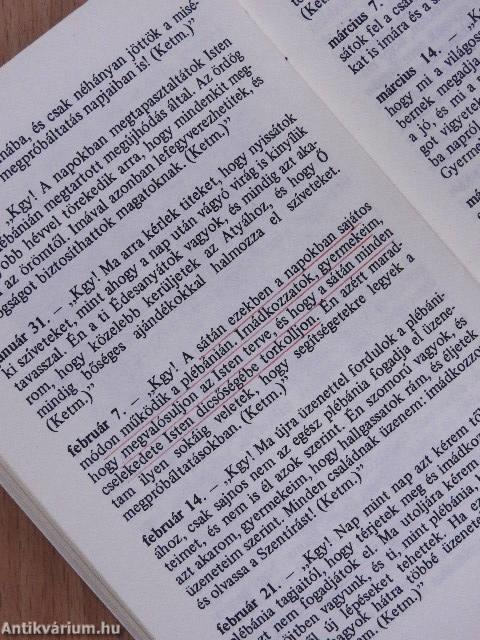 mába, és csak néhányan jöttek a misé-
megpróbáltatás napjaiban is! (Ketm.)”
„Kgy! A napokban megtapasztaltátok Isten
plébánián megtartott megújhódás által. Az ördög
több hévvel törekedik arra, hogy mindenkit meg-
az örömtől. Imával azonban lefegyverezhetitek, és
dogságot biztosíthattok magatoknak. (Ketm.)”
január 31. – „Kgy! Ma arra kérlek titeket, hogy nyissátok
ki szíveteket, mint ahogy a nap után vágyó virág is kinyílik
tavasszal. Én a ti Édesanyátok vagyok és mindig azt aka-
rom, hogy közelebb kerüljetek az Atyához, és hogy Ő
mindig bőséges ajándékokkal halmozza el szíveteket.
(Ketm.)”
február 7. – „Kgy! A sátán ezekben a napokban sajátos
módon működik a plébánián. Imádkozzatok gyermekeim,
hogy megvalósuljon az Isten terve, és hogy a sátán minden
cselekedete Isten dicsőségébe torkolljon. Én azért marad-
tam ilyen sokáig veletek, hogy segítségetekre legyek a
megpróbáltatásokban. (Ketm.)”
február 14. – „Kgy! Ma újra üzenettel fordulok a plébáni-
ához, csak sajnos nem az egész plébánia fogadja el üzene-
teimet, és nem is él azok szerint. Én szomorú vagyok, és
azt akarom, gyermekeim, hogy hallgassatok rám, és éljetek
üzeneteim szerint. Minden családnak üzenem: imádkozzon
és olvassa a Szentírást! (Ketm.)”
február 21. – „Kgy! Nap mint nap azt kérem tő
plébánia tagjaitól, hogy térjetek meg és imádkoz
nem fogadjátok el. Ma utoljára kérem
ben vagyunk, és ti, mint plébánia,
új lépéseket tehettek. Ha ez
hogyok hátra többé üzenete
(Ketm.)”
március 7.
sátok fel a csal
kat is imára és a s
március 14. –
hogy mi a világoss
bernek megadja
a jó, és mi a r
got vigyetek
ba napról
Gyerme
Antikvárium.hu